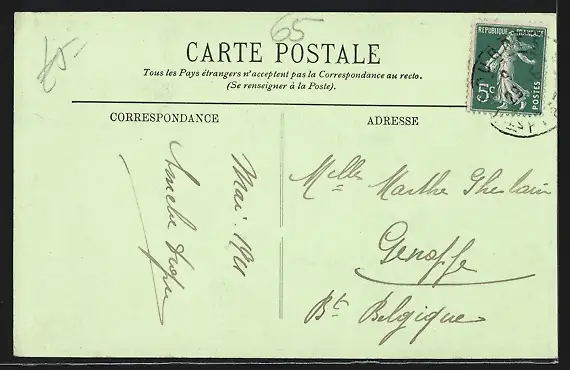 65
CARTE POSTALE
Tous les Pays étrangers n'acceptent pas la Correspondance au recto.
(Se renseigner à la Poste).
CORRESPONDANCE
ADRESSE
REPUBLIQUE FRANÇAISE
5c
POSTES
Mai 1921
Melle Marthe Ghelain
Genappe
Bt Belgique